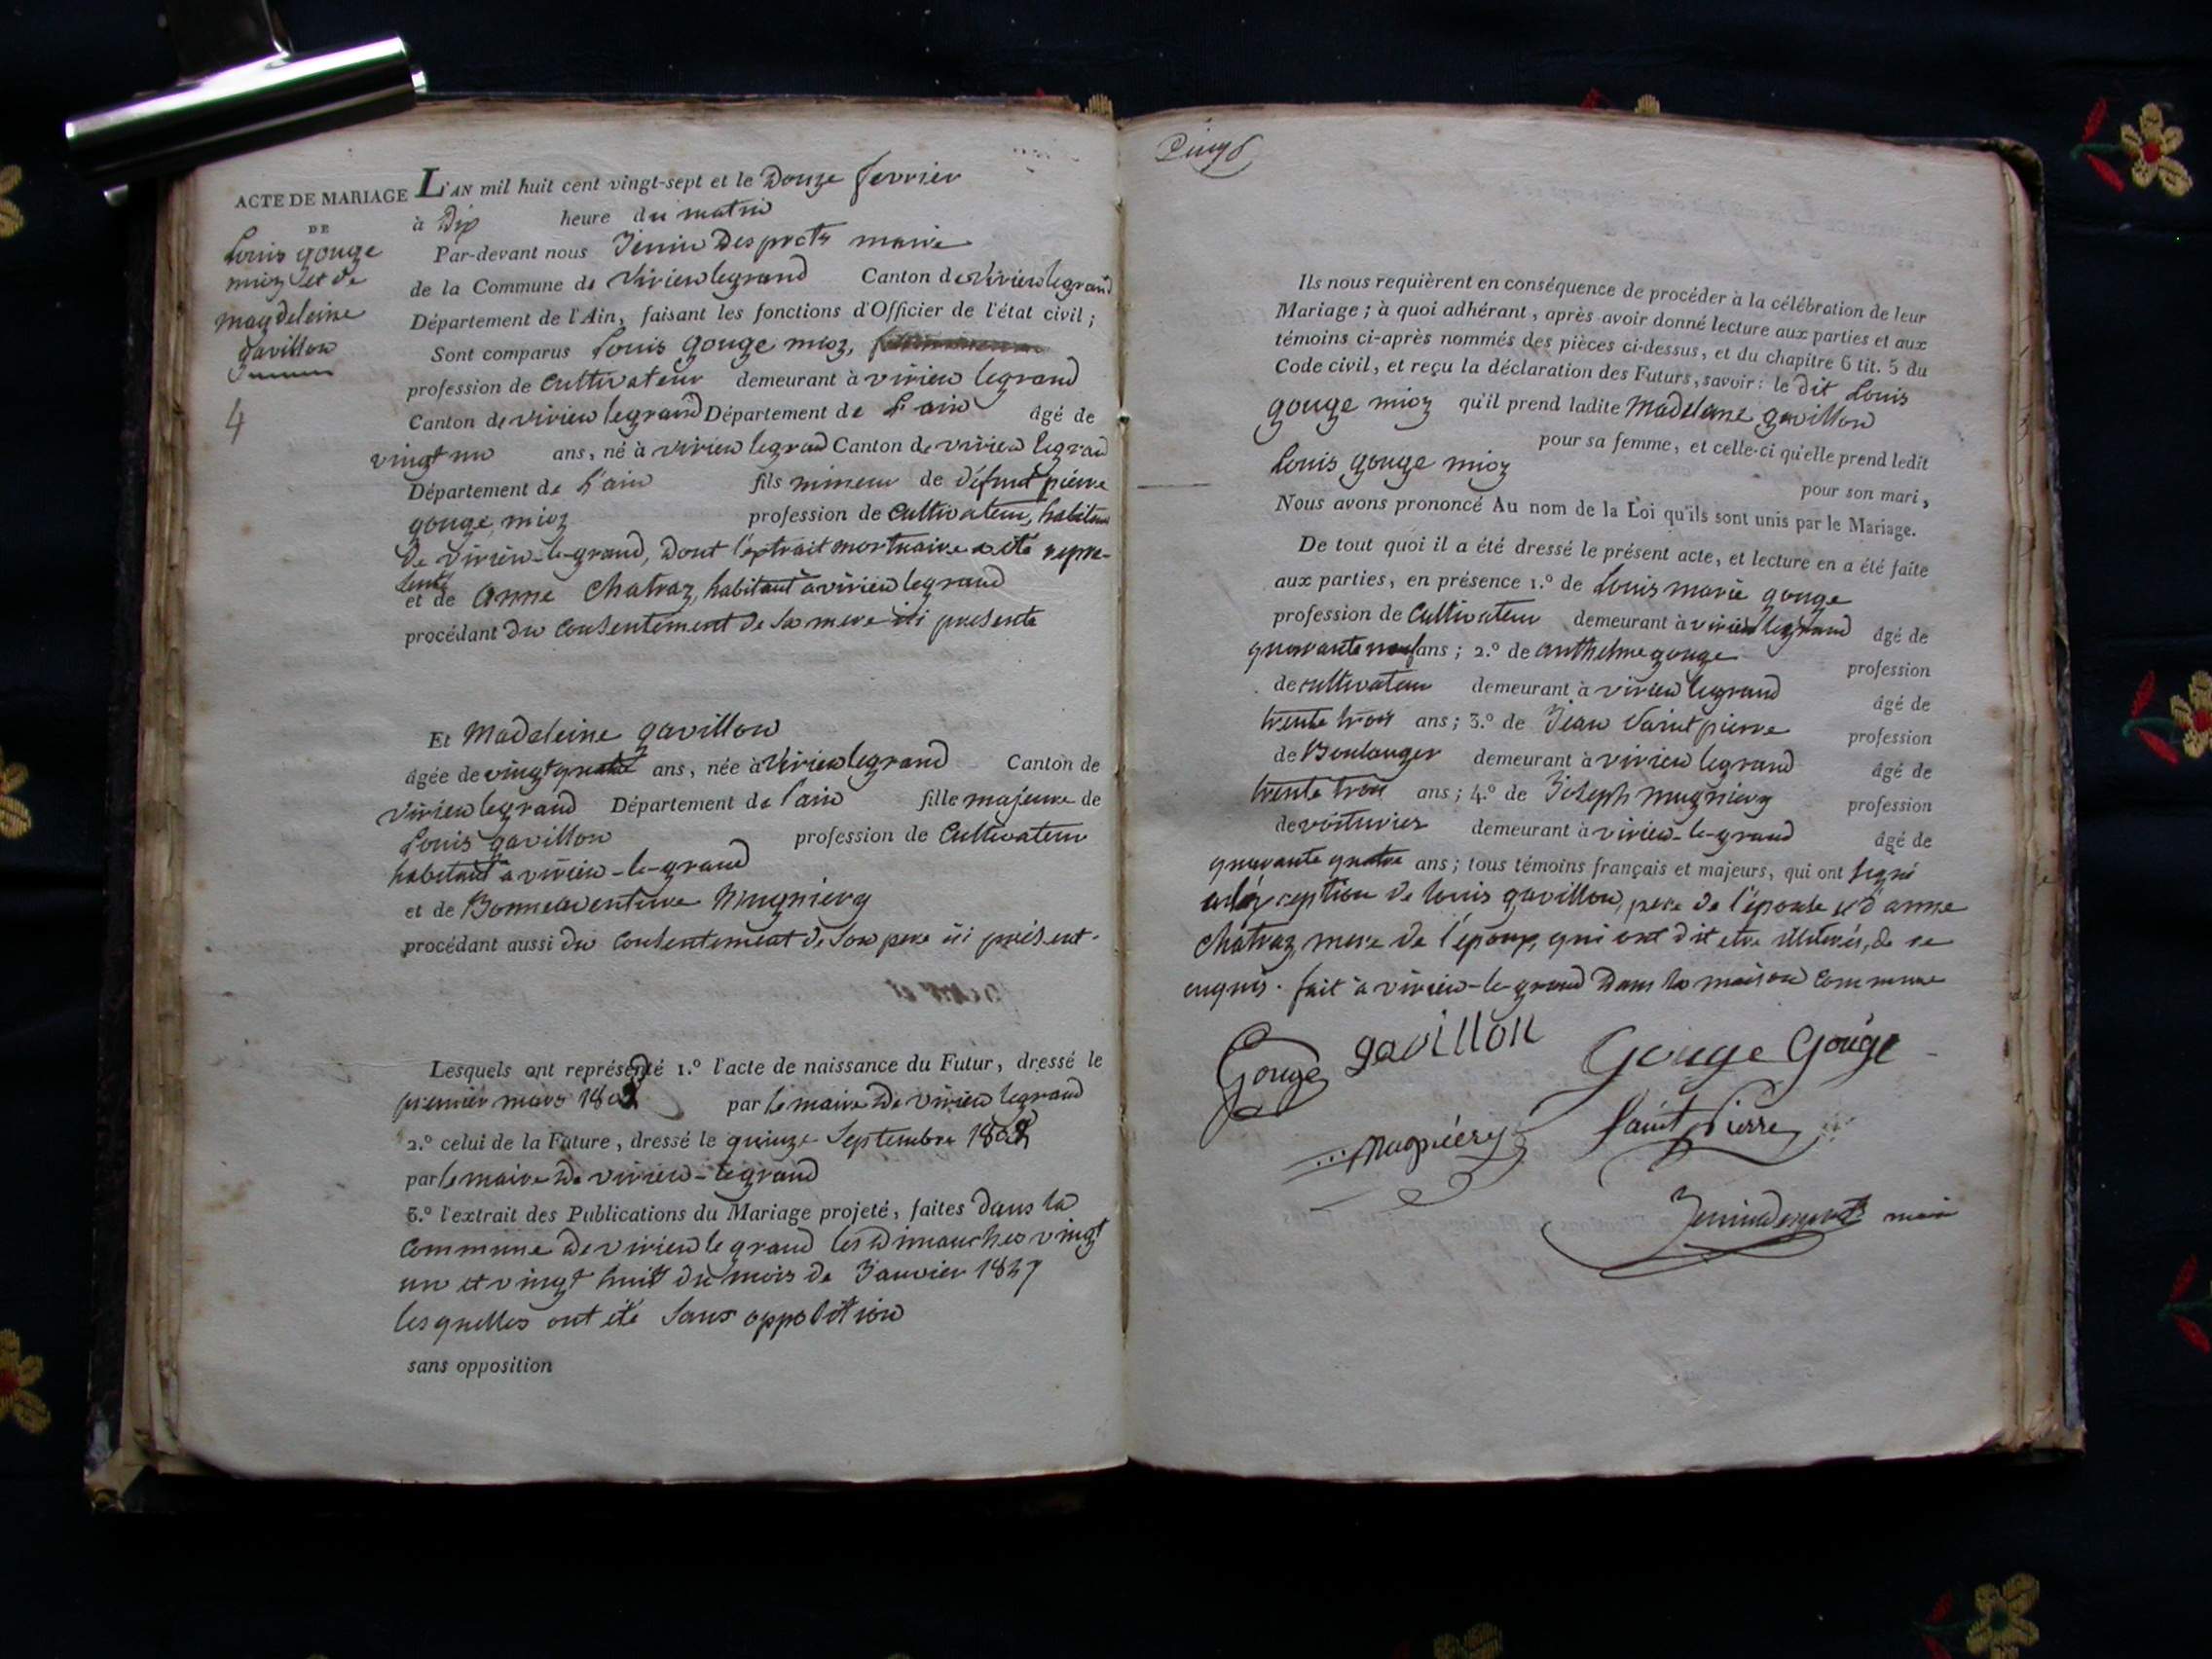 ACTE DE MARIAGE
DE
Louis gouge
mioz et de
magdeleine
gavillon
4
L'AN mil huit cent vingt-sept et le Douze fevrier
à Dix heure du matin
Par-devant nous Jenin Desprots maire
de la Commune de Virieu legrand Canton de Virieu legrand
Département de l'Ain, faisant les fonctions d'Officier de l'état civil;
Sont comparus Louis gouge mioz,
profession de Cultivateur demeurant à virieu legrand
Canton de virieu legrand Département de L'ain âgé de
vingt un ans, né à virieu legrand Canton de virieu legrand
Département de L'ain fils mineur de défunt pierre
gouge mioz profession de Cultivateur, habitant
De virieu-le-grand, Dont l'extrait mortuaire a été repre-
senté
et de Anne Chatraz, habitant à virieu legrand
procédant du Consentement De Sa mere ici presente
Et Madeleine gavillon
âgée de vingt quatre ans, née à Virieu legrand Canton de
virieu legrand Département de l'ain fille majeure de
Louis gavillon profession de Cultivateur
habitant a virieu-le-grand
et de Bonneaventure Mugniery
procédant aussi du Consentement de Son pere ici présent.
Lesquels ont représenté 1.º l'acte de naissance du Futur, dressé le
premier mars par le maire De virieu legrand
2.º celui de la Future, dressé le quinze Septembre
par le maire De virieu-legrand
3.º l'extrait des Publications du Mariage projeté, faites Dans la
Commune De virieu le grand les Dimanches vingt
un et vingt huit du mois de Janvier 1827
lesquelles ont été Sans oppolition
sans opposition
Ils nous requièrent en conséquence de procéder à la célébration de leur
Mariage; à quoi adhérant, après avoir donné lecture aux parties et aux
témoins ci-après nommés des pièces ci-dessus, et du chapitre 6 tit. 5 du
Code civil, et reçu la déclaration des Futurs, savoir: le dit Louis
gouge mioz qu'il prend ladite Madeleine gavillon
pour sa femme, et celle-ci qu'elle prend ledit
Louis gouge mioz
pour son mari,
Nous avons prononcé Au nom de la Loi qu'ils sont unis par le Mariage.
De tout quoi il a été dressé le présent acte, et lecture en a été faite
aux parties, en présence 1.º de Louis marie gouge
profession de Cultivateur demeurant à virieu legrand âgé de
quarante neuf ans; 2.º de anthelme gouge profession
de cultivateur demeurant à virieu legrand âgé de
trente trois ans; 3.º de Jean Saint pierre profession
de Boulanger demeurant à virieu legrand âgé de
trente trois ans; 4.º de Joseph mugniery profession
de voiturier demeurant à virieu-le-grand âgé de
quarante quatre ans; tous témoins français et majeurs, qui ont signé
a léxception de louis gavillon, pere de l'épouse et d'anne
Chatraz, mere de l'époux, qui ont dit etre illiterés, de ce
enquis. fait à virieu-le-grand Dans la maison Commune
Gouge gavillon Gouge Gouge
Mugniéery Saint Pierre
Jenin Desprots maire